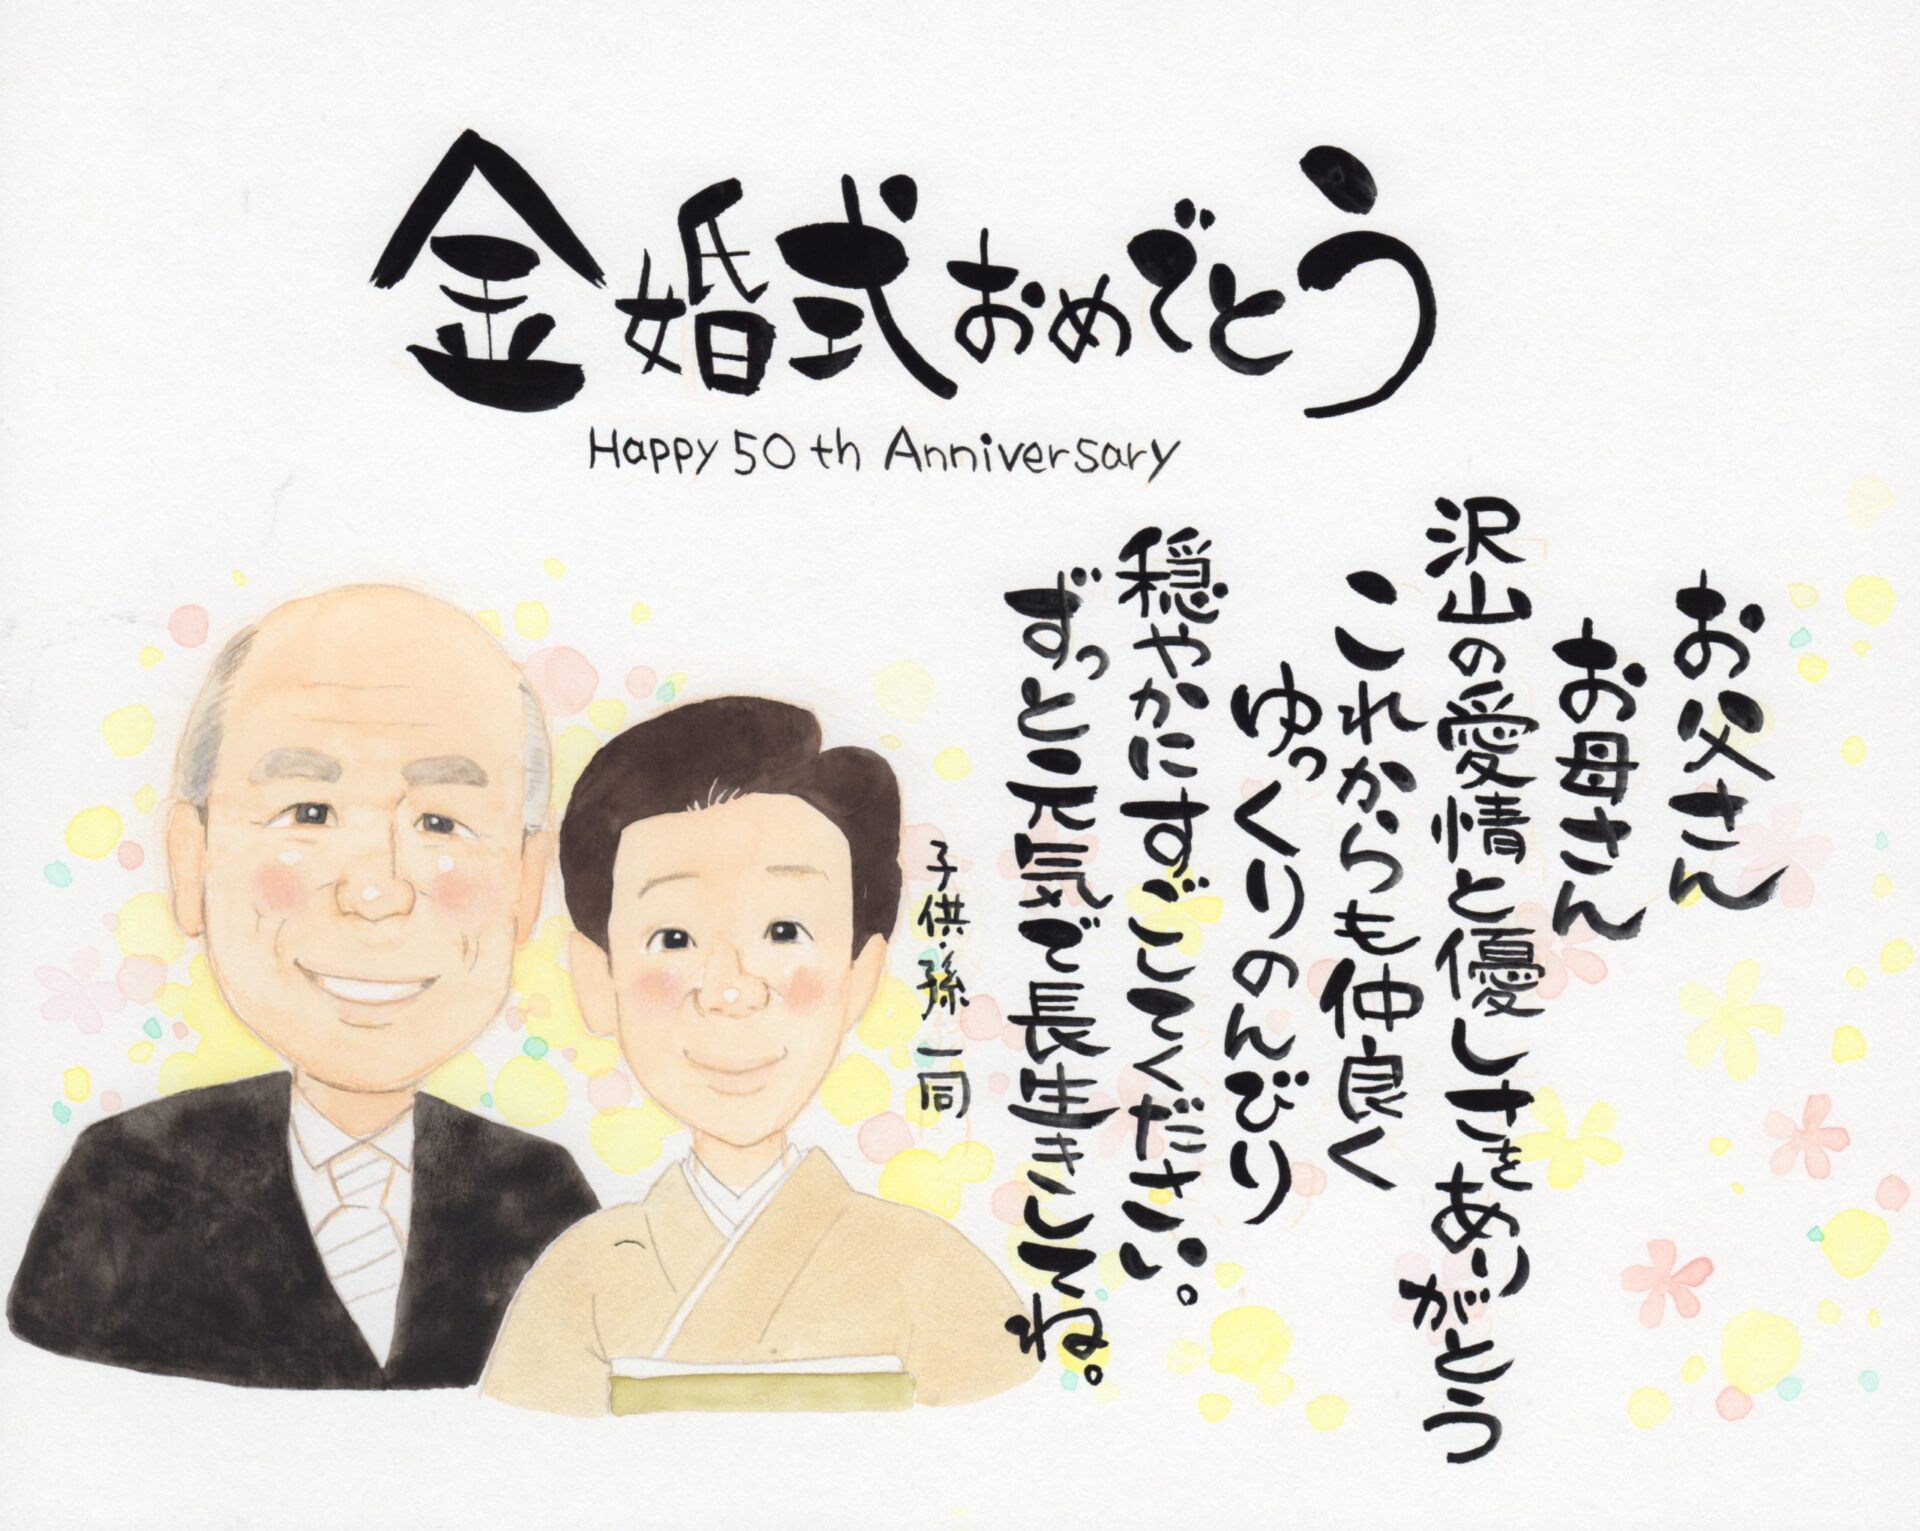 金婚式おめでとう
Happy 50th Anniversary
お父さん
お母さん
沢山の愛情と優しさをありがとう
これからも仲良く
ゆっくりのんびり
穏やかにすごしてください。
ずっと元気で長生きしてね。
子供・孫一同